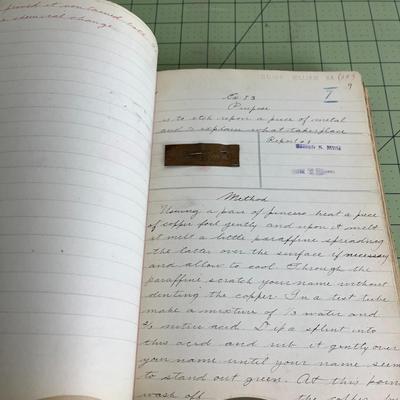 proved it
chemical change
9
I
Ex. 53
Purpose
is to etch upon a piece of metal
and to explain what takes place
Report of
Method
Having a pair of pincers heat a piece
of copper foil gently and upon it melt
it melt a little paraffine spreading
the latter over the surface if necessary
and allow to cool. Through the
paraffine scratch your name without
denting the copper. In a test tube
make a mixture of ⅔ water and
nitric acid. Dip a splint into
this acid and rub it gently over
your name until your name seems
to stand out green. At this point
wash off the copper